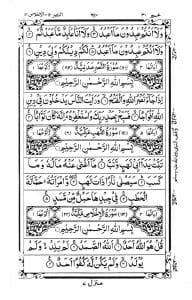 وَلَآ اَنْتُمْ عٰبِدُوْنَ مَآ اَعْبُدُ ۝ وَلَآ اَنَا عَابِدٌ مَّا عَبَدْتُّمْ ۝
وَلَآ اَنْتُمْ عٰبِدُوْنَ مَآ اَعْبُدُ ۝ لَكُمْ دِيْنُكُمْ وَلِيَ دِيْنِ ۝
سُوْرَةُ النَّصْرِ مَدَنِيَّةٌ
بِسْمِ اللّٰهِ الرَّحْمٰنِ الرَّحِيْمِ
اِذَا جَآءَ نَصْرُ اللّٰهِ وَالْفَتْحُ ۝ وَرَاَيْتَ النَّاسَ يَدْخُلُوْنَ فِيْ دِيْنِ
اللّٰهِ اَفْوَاجًا ۝ فَسَبِّحْ بِحَمْدِ رَبِّكَ وَاسْتَغْفِرْهُ اِنَّهٗ كَانَ تَوَّابًا ۝
سُوْرَةُ اللَّهَبِ مَكِّيَّةٌ
بِسْمِ اللّٰهِ الرَّحْمٰنِ الرَّحِيْمِ
تَبَّتْ يَدَآ اَبِيْ لَهَبٍ وَّتَبَّ ۝ مَآ اَغْنٰى عَنْهُ مَالُهٗ وَمَا
كَسَبَ ۝ سَيَصْلٰى نَارًا ذَاتَ لَهَبٍ ۝ وَّامْرَاَتُهٗ حَمَّالَةَ
الْحَطَبِ ۝ فِيْ جِيْدِهَا حَبْلٌ مِّنْ مَّسَدٍ ۝
سُوْرَةُ الْاِخْلَاصِ مَكِّيَّةٌ
بِسْمِ اللّٰهِ الرَّحْمٰنِ الرَّحِيْمِ
قُلْ هُوَ اللّٰهُ اَحَدٌ ۝ اَللّٰهُ الصَّمَدُ ۝ لَمْ يَلِدْ وَلَمْ
يُوْلَدْ ۝ وَلَمْ يَكُنْ لَّهٗ كُفُوًا اَحَدٌ ۝
منزل ۷